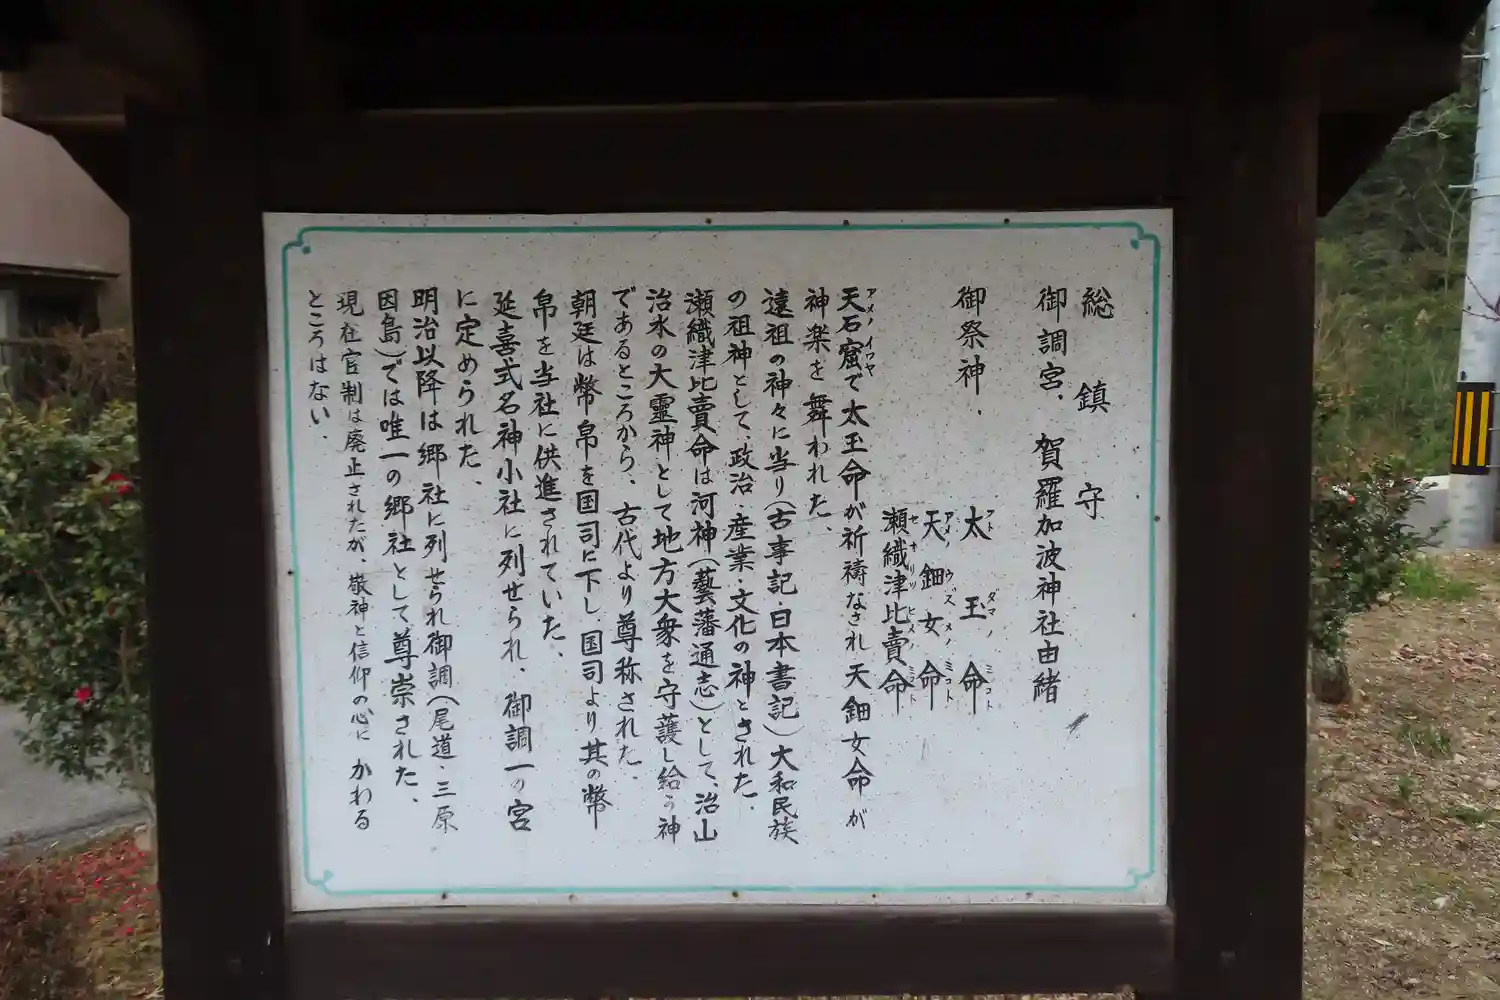 総鎮守
御調宮、賀羅加波神社由緒
御祭神、
太玉命
フト ダマノ ミコト
天鈿女命
アメノ ウズメノ ミコト
瀬織津比賣命
セオリツ ヒメノ ミコト
天石窟で太玉命が祈禱なされ天鈿女命が
アメノ イワヤ
神楽を舞われた、
遠祖の神々に当り(古事記・日本書記)大和民族
の祖神として、政治・産業・文化の神とされた、
瀬織津比賣命は河神(藝藩通志)として、治山
治水の大靈神として地方大衆を守護し給う神
であるところから、古代より尊称された、
朝廷は幣帛を国司に下し国司より其の幣
帛を当社に供進されていた、
延喜式名神小社に列せられ、御調一の宮
に定められた、
明治以降は郷社に列せられ御調(尾道・三原
因島)では唯一の郷社として尊崇された、
現在官制は廃止されたが、敬神と信仰の心に かわる
ところはない、